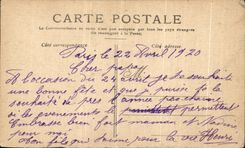 CARTE POSTALE
La Correspondance au recto n'est pas acceptée par tous les pays étrangers
(Se renseigner à la Poste)
Côté correspondance Côté adresse
Paris le 22 Avril 1920
Cher papa
A l'occasion du 24 Avril je te souhaite
une bonne fête et que je puisse te la
souhaité de près l'année prochaine
si les évenements le permettent
Embrasse bien fort maman et
pour moi
Ton fils qui t'aime pour la vie Henri